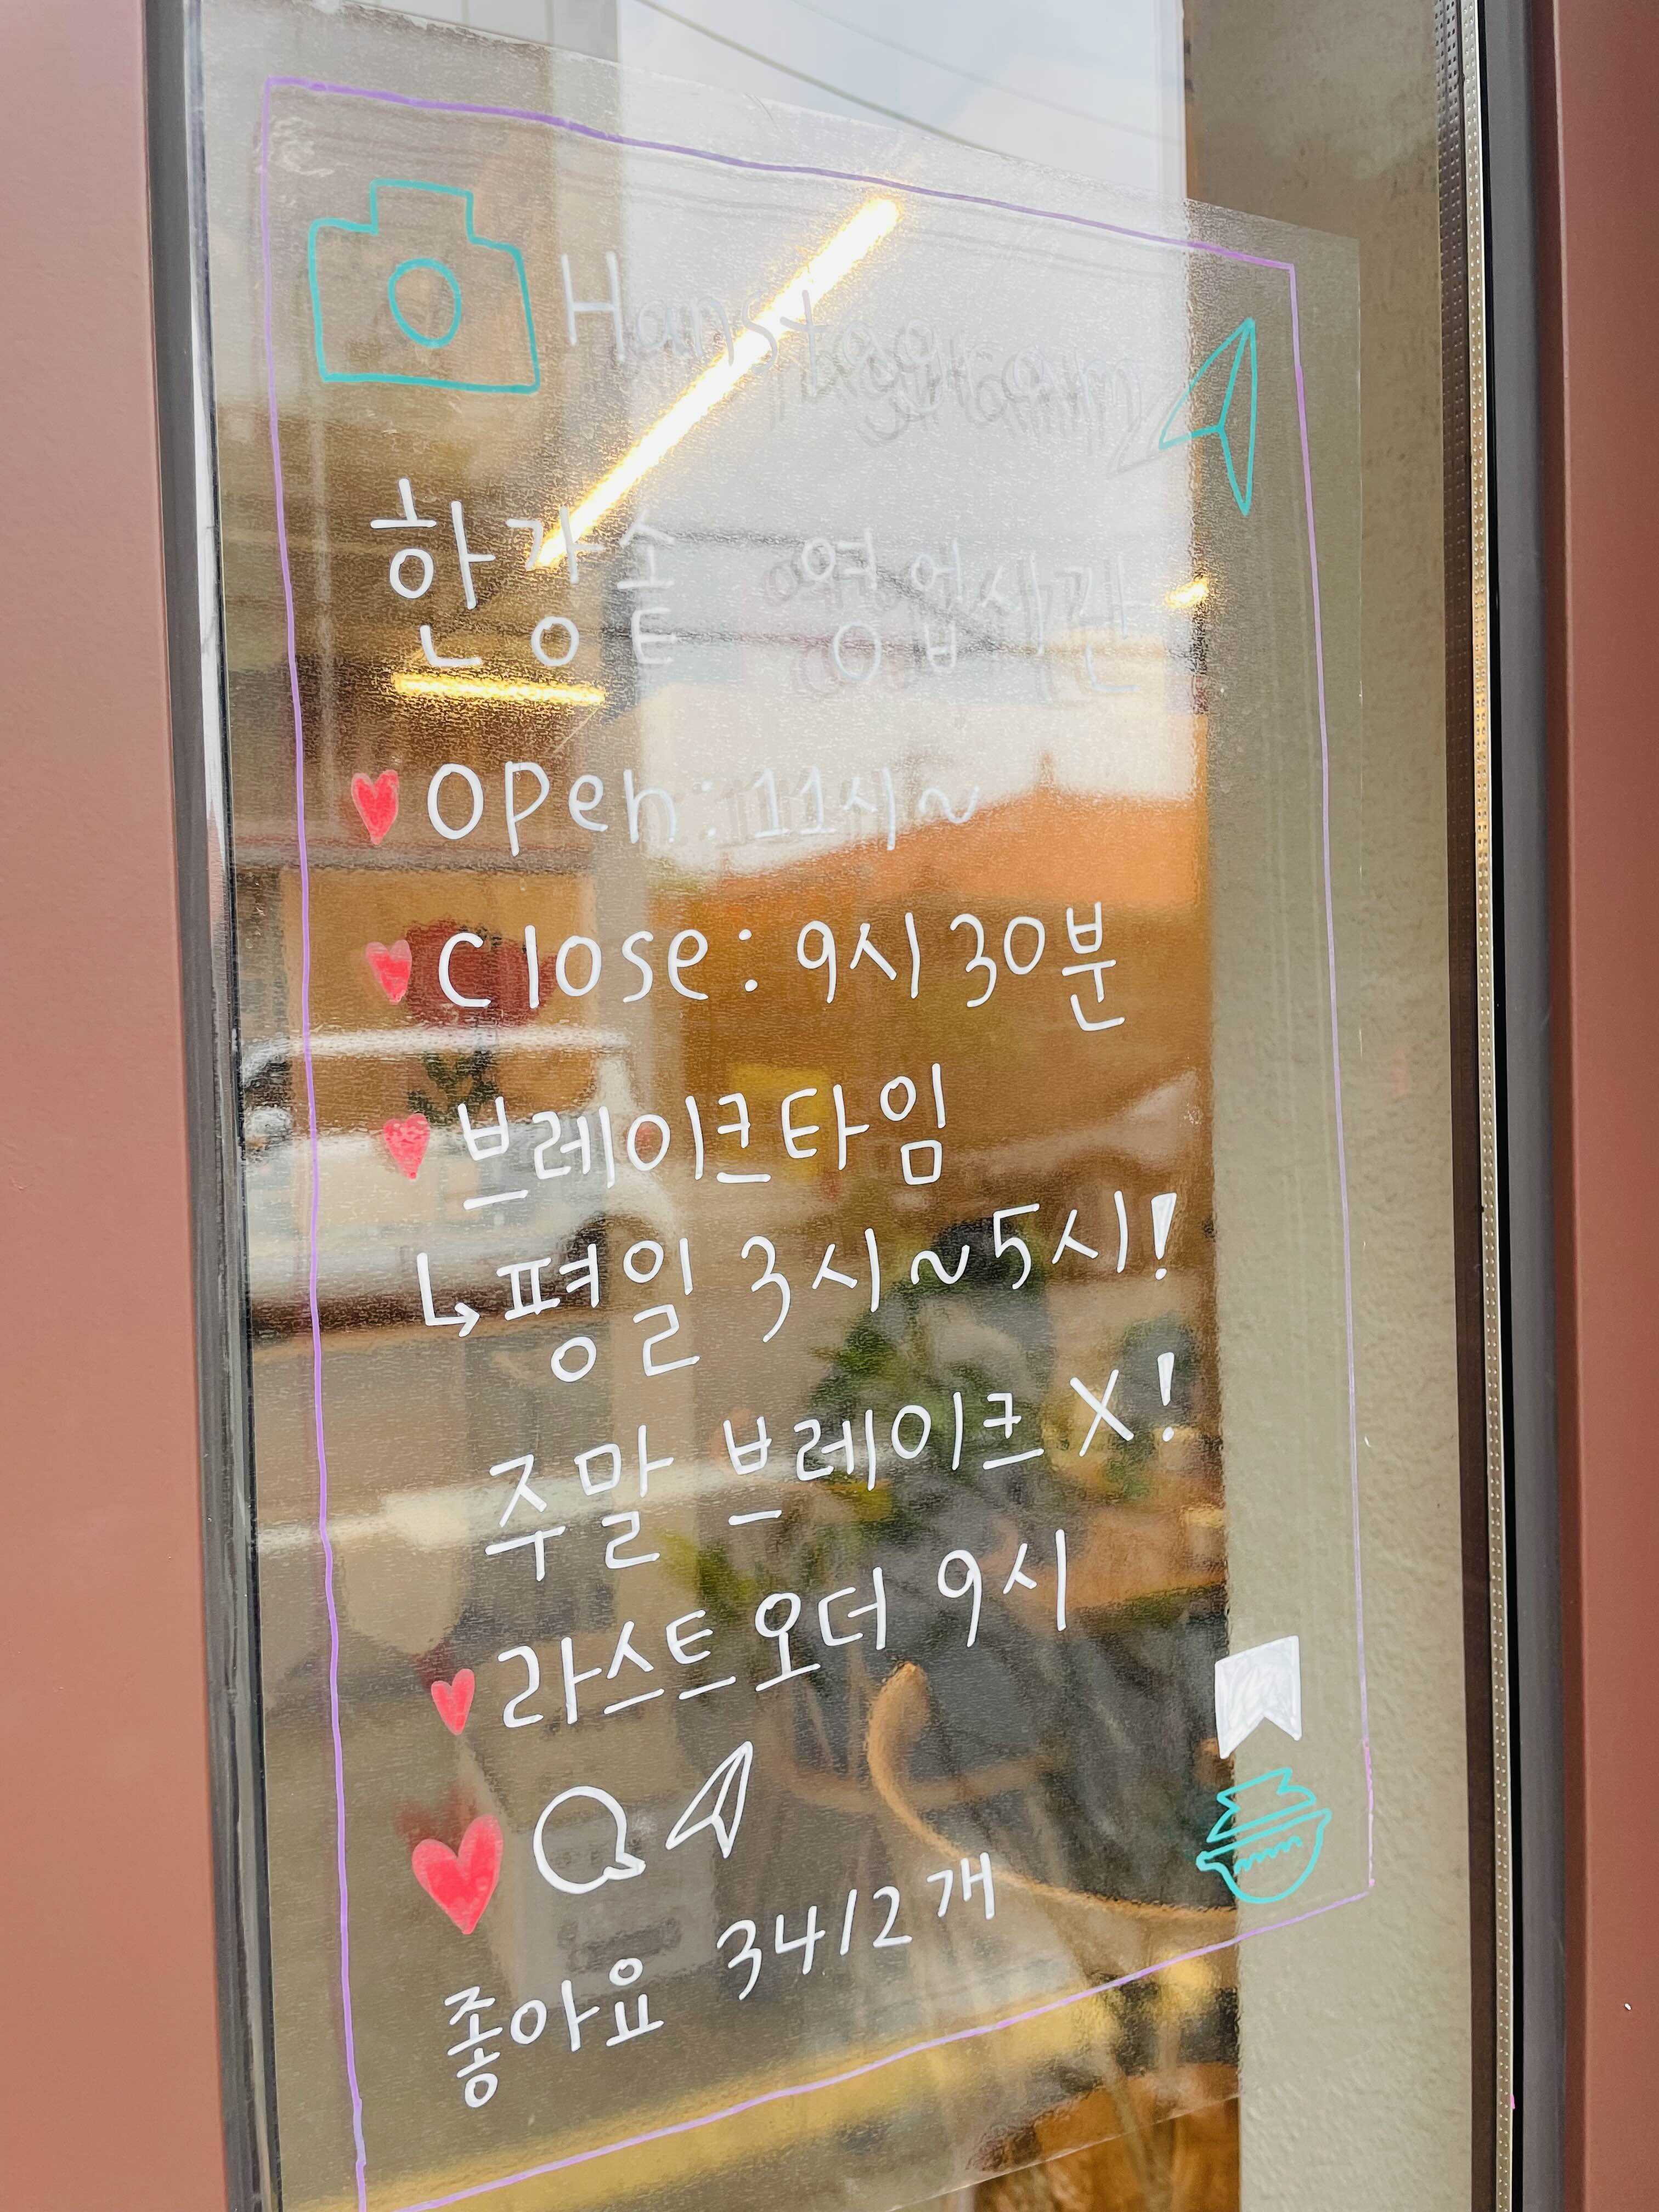 Hanstagram
한강솥 영업시간
Open: 11시~
Close: 9시 30분
브레이크타임
↳평일 3시~5시!
주말 브레이크 X!
라스트오더 9시
좋아요 3412개